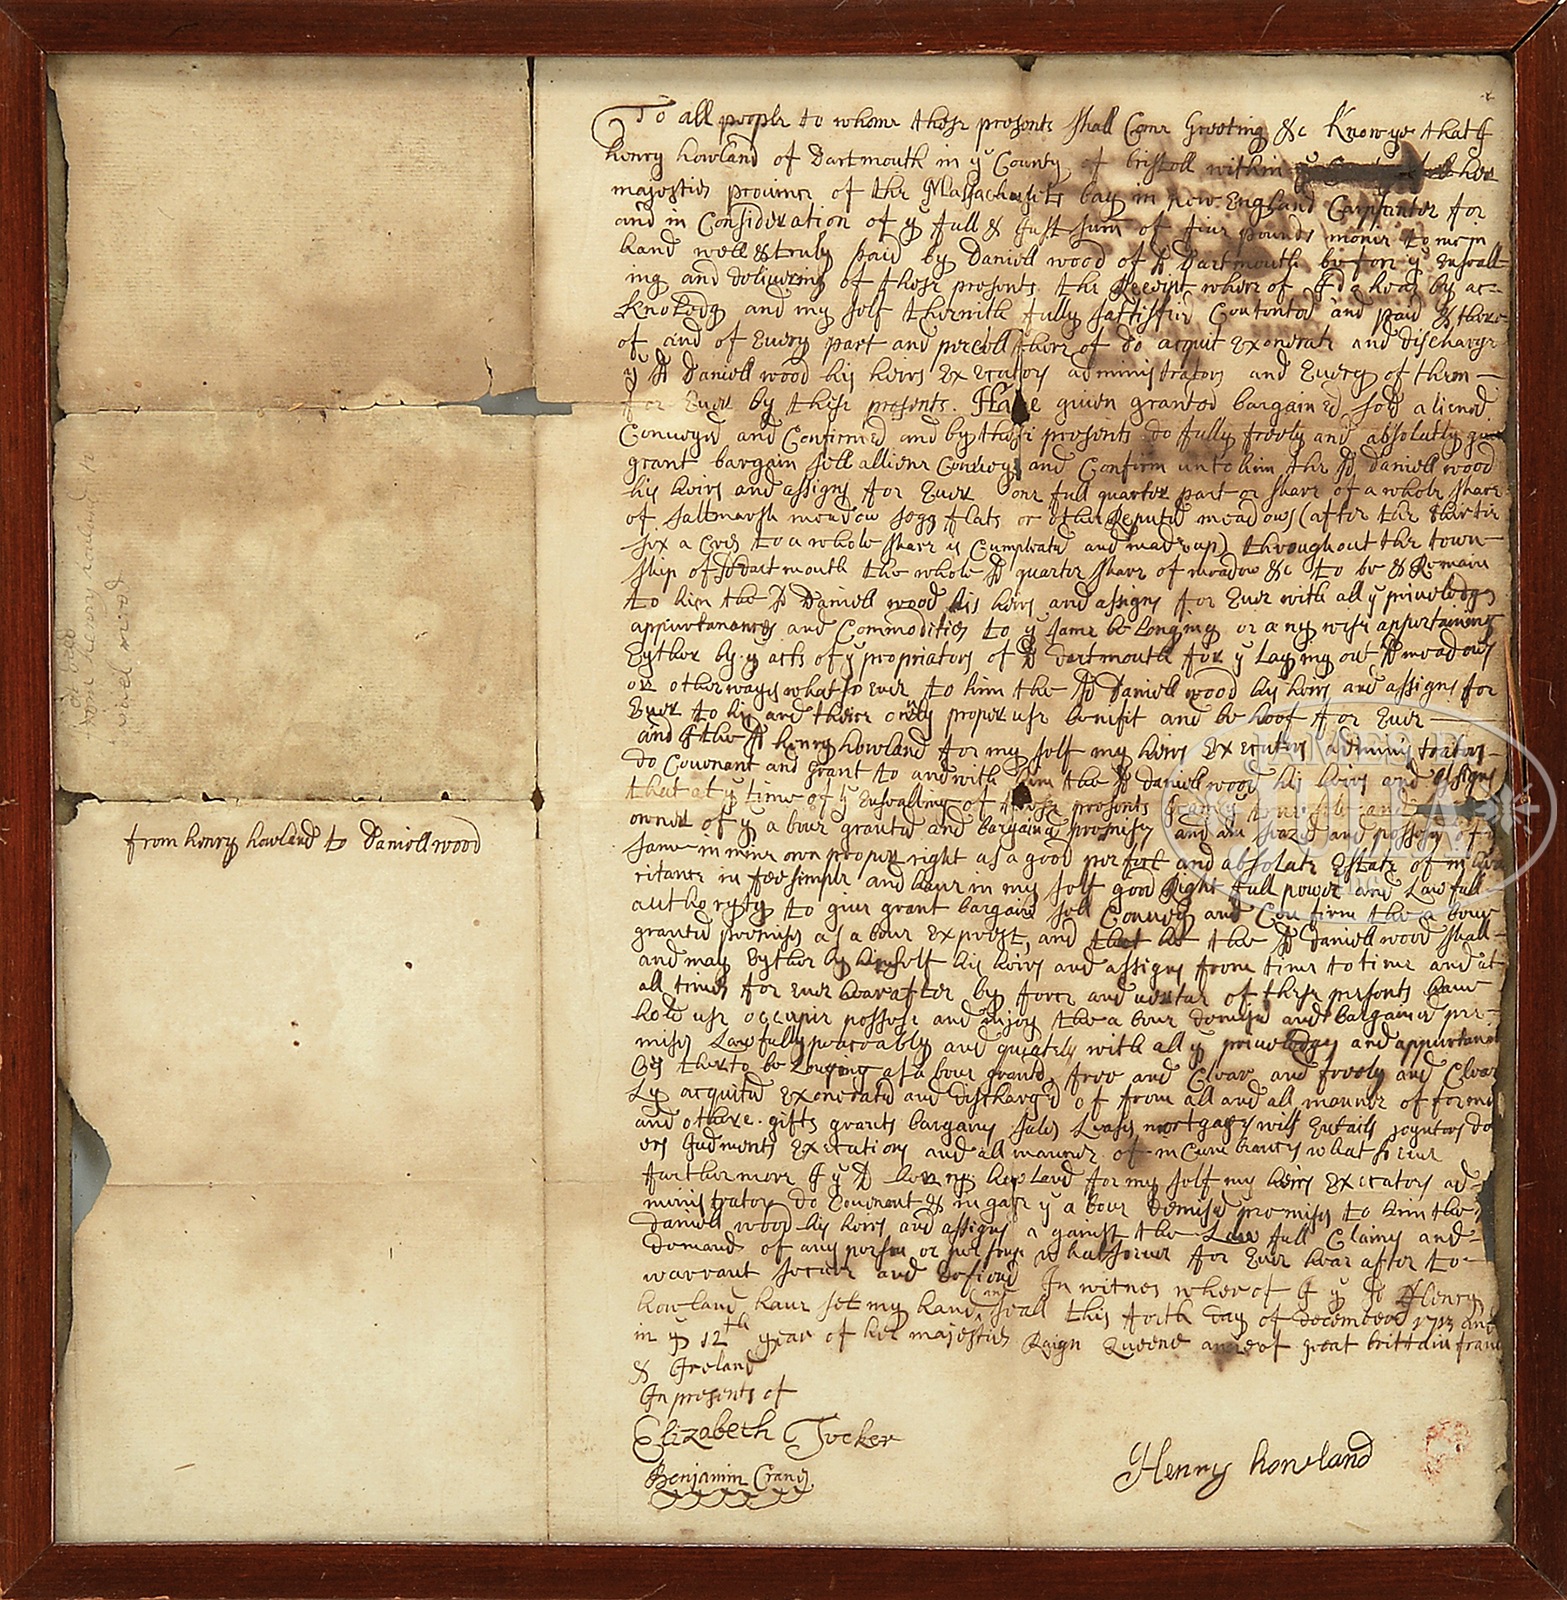 To all people to whome these presents shall Come Greeting &c Know ye that I
henry howland of Dartmouth in ye County of bristoll within her
majesties prouince of the Massachusets bay in new England Carpinter for
and in Consideration of ye full & Just sum of fiue pounds money to me in
hand well & truly paid by Daniell wood of sd Dartmouth before ye Enseall
ing and deliuering of these presents the Receipt where of I do hear by ac=
knoledg and my self therwith fully sattisfied Contented and paid & there
of and of Euery part and percell there of do acquit exonerate and discharge
ye sd Daniell wood his heirs Executors administrators and Euery of them —
for Euer by these presents. Haue giuen granted bargained sold aliened
Conueyed and Confirmed and by these presents do fully freely and absolutly giue
grant bargain sell alliene Conuey and Confirm unto him the sd Daniell wood
his heirs and assigns for Euer one full quarter part or share of a whole share
of saltmarsh meadow segg flats or other Reputed meadows (after the thertie
six acres to a whole share is Cumpleated and made up) throughout the town
ship of sd dartmouth the whole sd quarter share of meadow &c to be & Remain
to him the sd Daniell wood his heirs and assigns for Euer with all ye priueledges
appurtenances and Commodities to ye same be longing or any wise appertaining
Eyther by ye acts of ye propriators of sd dartmouth for ye laying out sd meadows
or otherways what so euer to him the sd Daniell wood his heirs and assigns for
Euer to his and theire only proper use benifit and be hoof for Euer —
and I the sd henry howland for my self my heirs Executors administrators —
do Couenant and grant to and with him the sd daniell wood his heirs and assigns
that at ye time of ye Ensealing of these presents I am ye true and
owner of ye a boue granted and bargained premises and am seazed and possesed of ye
same in mine own proper right as a good perfect and absolute Estate of inhea
ritance in fee simple and haue in my self good Right full power and Lawfull
authoryty to giue grant bargain sell Conuey and Confirm the a boue
granted premises as a boue exprest, and that he the sd daniell wood shall
and may Eyther by himself his heirs and assigns from time to time and at
all times for euer hearafter by force and uertue of these presents haue
hold use occupie possese and injoy the a boue demised and bargained pre=
mises Lawfully peaceably and quietely with all ye priueledges and appurtenan
Ces therto be longing as a boue granted, free and Clear and freely and Clear
Ly acquited exonerated and discharged of from all and all manner of former
and othere gifts grants bargains sales Leases mortgages wills Entails joyntors do
ers Judments executions and all manner of incumbrances what so euer
furthermore I ye sd henry howland for my self my heirs Executors ad
ministrators do Couenant & ingage ye a boue demised premises to him the
daniell wood his heirs and assigns a gainst the Law full Claims and=
demands of any person or persons whatsoeuer for Euer hear after to—
warrant secure and defend In witnes wher of I ye sd Henry
howland haue set my hand and seall this forth day of december 1713 and
in ye 12th year of her majesties Raign Queene anne of great brittain franc
& Ireland
In presents of
Elizabeth Tucker
Benjamin Crane
Henry howland
from henry howland to Daniell wood
from henry howland to
Daniel wood
JAMES D.
JULIA
INC.